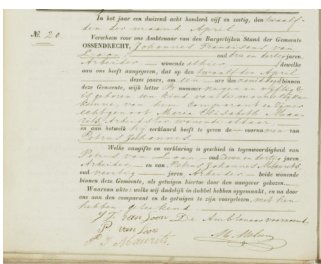 In het jaar een duizend acht honderd vijf en zestig, den twaalf-
den der maand April
No. 20. Verscheen voor ons Ambtenaar van den Burgerlijken Stand der Gemeente
OSSENDRECHT, Johannes Franciscus van
Loon oud drie en dertig jaren,
Arbeider wonende alhier dewelke
aan ons heeft aangegeven, dat op den twaalfden April
dezes jaars, om ure des binnen
deze Gemeente, wijk letter nummer
is geboren een kind van het mannelijke
kunne, van hem Comparant en zijne
echtgenoot Maria Elisabeth
wonende alhier
en aan hetwelk hij verklaard heeft te geven de voornamen van
Petrus Johannes
Welke aangifte en verklaring is geschied in tegenwoordigheid van
Petrus van Loon oud jaren,
Arbeider en van Petrus Johannes Mauritz
oud jaren, Arbeider beide wonende
binnen deze Gemeente, als getuigen hiertoe door den aangever gekozen.
Waarvan akte: welke wij dadelijk in dubbel hebben opgemaakt, en na door
ons aan den comparant en de getuigen te zijn voorgelezen, met hen
hebben geteekend
J F van Loon De Ambtenaar voornoemd,
P van Loon
P J Mauritz